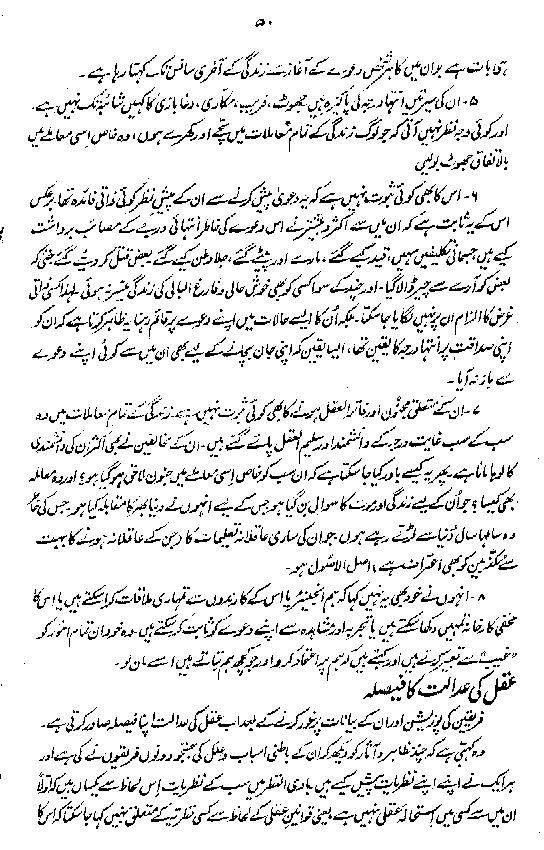 ۵۰
یہی بات ہے جو ان میں کا ہر شخص دعوے کے آغاز سے زندگی کے آخری سانس تک کہتا رہا ہے۔
۵۔ ان کی سیرتیں انتہا درجہ کی پاکیزہ ہیں جھوٹ، فریب، مکاری، دغا بازی کا کہیں شائبہ تک نہیں ہے۔
اور کوئی وجہ نظر نہیں آتی کہ جو لوگ زندگی کے تمام معاملات میں سچے اور کھرے ہوں، وہ خاص اسی معاملے میں
بالاتفاق جھوٹ بولیں
۶۔ اس کا بھی کوئی ثبوت نہیں ہے کہ یہ دعویٰ پیش کرنے سے ان کے پیش نظر کوئی ذاتی فائدہ تھا۔ برعکس
اس کے یہ ثابت ہے کہ ان میں سے اکثر و بیشتر نے اس دعوے کی خاطر انتہائی درجے کے مصائب برداشت
کیے ہیں جسمانی تکلیفیں سہیں، قید کیے گئے، مارے اور پیٹے گئے، جلا وطن کیے گئے بعض قتل کر دیے گئے حتیٰ کہ
بعض کو آرے سے چیر ڈالا گیا۔ اور چند کے سوا کسی کو بھی خوش حالی و فارغ البالی کی زندگی میسر نہ ہوئی لہٰذا کسی ذاتی
غرض کا الزام ان پر نہیں لگایا جا سکتا۔ بلکہ اُن کا ایسے حالات میں اپنے دعوے پر قائم رہنا یہ ظاہر کرتا ہے کہ ان کو
اپنی صداقت پر انتہا درجہ کا یقین تھا، ایسا یقین کہ اپنی جان بچانے کے لیے بھی ان میں سے کوئی اپنے دعوے
سے باز نہ آیا۔
۷۔ ان کے متعلق مجنون اور فاتر العقل ہونے کا بھی کوئی ثبوت نہیں ہے۔ زندگی کے تمام معاملات میں وہ
سب کے سب غایت درجہ کے دانشمند اور سلیم العقل پائے گئے ہیں۔ ان کے مخالفین نے بھی اکثر ان کی دانشمندی
کا لوہا مانا ہے۔ پھر یہ کیسے باور کیا جا سکتا ہے کہ ان سب کو خاص اِسی معاملے میں جنون لاحق ہو گیا ہو؟ اور وہ معاملہ
بھی کیسا؟ جو اُن کے لیے زندگی اور موت کا سوال بن گیا ہو۔ جس کے لیے انہوں نے دنیا بھر کا مقابلہ کیا ہو۔ جس کی خاطر
وہ سالہا سال دُنیا سے لڑتے رہے ہوں۔ جو ان کی ساری عاقلانہ تعلیمات کا (جن کے عاقلانہ ہونے کا بہت
سے مکذبین کو بھی اعتراف ہے)، اصل الاصُول ہو۔
۸۔ انہوں نے خود بھی یہ نہیں کہا کہ ہم انجینئر یا اس کے کارندوں سے تمہاری ملاقات کرا سکتے ہیں یا اس کا
مخفی کارخانہ تمہیں دکھا سکتے ہیں یا تجربہ اور مشاہدہ سے اپنے دعوے کو ثابت کر سکتے ہیں۔ وہ خود ان تمام امُور کو
"غیب" سے تعبیر کرتے ہیں اور کہتے ہیں کہ تم ہم پر اعتماد کرو اور جو کچھ ہم بتاتے ہیں اسے مان لو۔
عقل کی عدالت کا فیصلہ
فریقین کی پوزیشن اور ان کے بیانات پر غور کرنے کے بعد اب عقل کی عدالت اپنا فیصلہ صادر کرتی ہے۔
وہ کہتی ہے کہ چند مظاہر و آثار کو دیکھ کر ان کے باطنی اسباب و علل کی جستجو دونوں فریقوں نے کی ہے اور
ہر ایک نے اپنے اپنے نظریات پیش کیے ہیں۔ بادی النظر میں سب کے نظریات اِس لحاظ سے یکساں ہیں کہ اوّلاً
ان میں سے کسی میں استحالۂ عقلی نہیں ہے یعنی قوانین عقلی کے لحاظ سے کسی نظریے کے متعلق نہیں کہا جا سکتا کہ اس کا